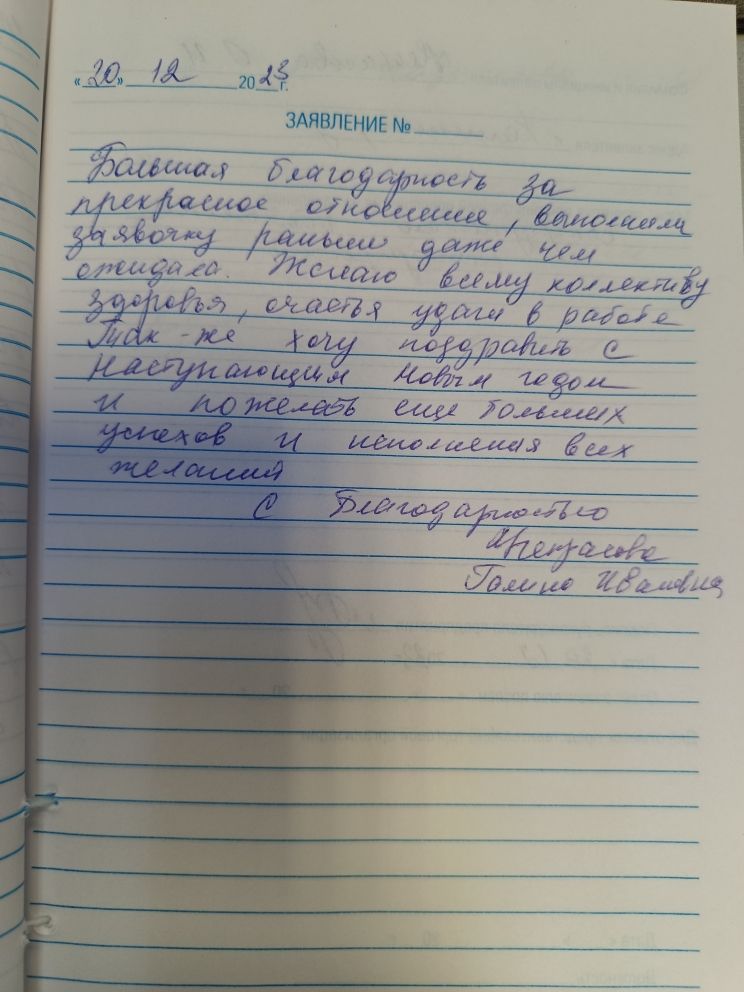 «20» 12 2023 г.
ЗАЯВЛЕНИЕ №
Большая благодарность за
прекрасное отношение, выполнили
заявочку раньше даже чем
ожидала. Желаю всему коллективу
здоровья, счастья удачи в работе
Так-же хочу поздравить с
Наступающим Новым годом
и пожелать еще больших
успехов и исполнения всех
желаний
С Благодарностью
Галина Ивановна